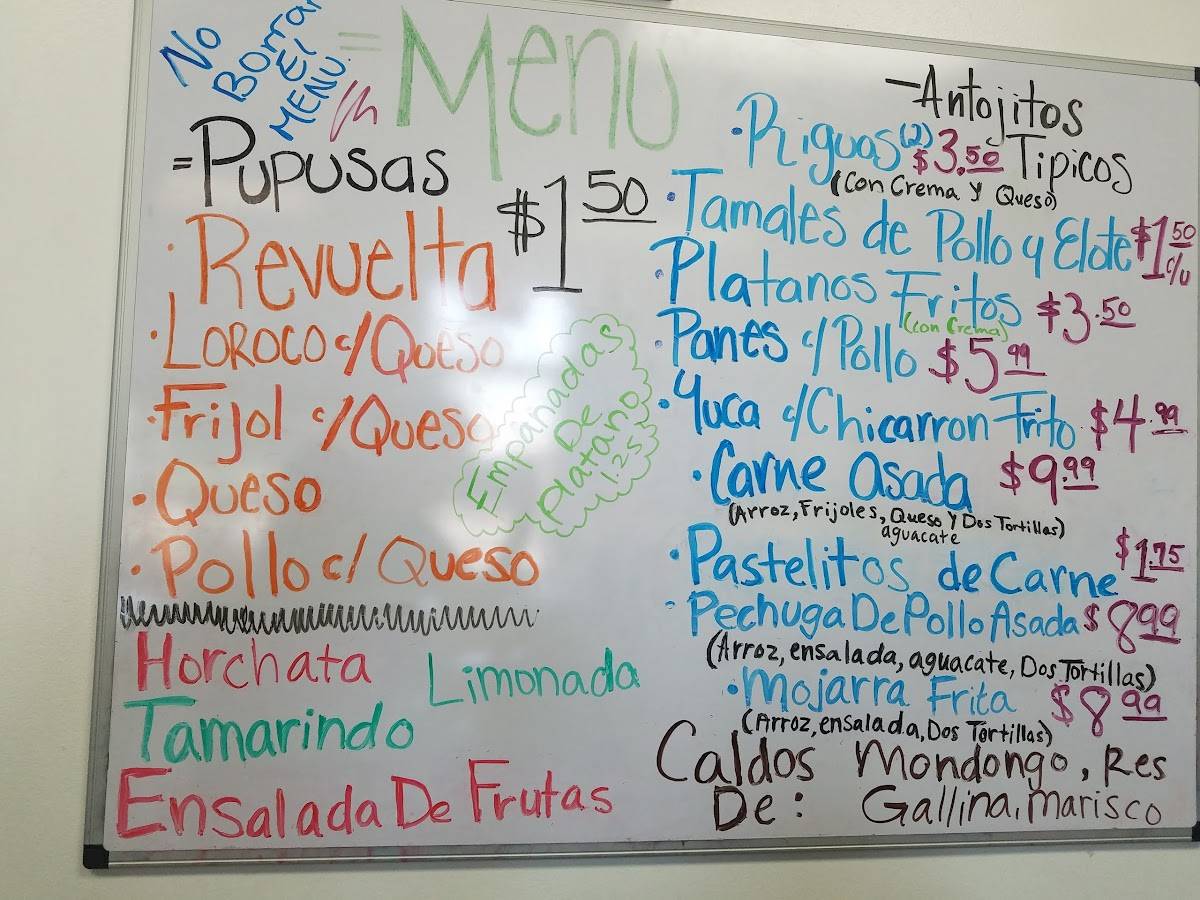 No
Borrar
El
MENU.
= Menu
= Pupusas
$1.50
· Revuelta
· Loroco c/Queso
· Frijol c/Queso
· Queso
· Pollo c/ Queso
Empanadas
De
platano
1.25
Horchata
Limonada
Tamarindo
Ensalada De Frutas
- Antojitos
Tipicos
· Riguas (2) $3.50
(Con Crema y Queso)
· Tamales de Pollo y Elote $1.50 c/u
· Platanos Fritos $3.50
(con Crema)
· Panes c/Pollo $5.99
· Yuca c/Chicarron Frito $4.99
· Carne Asada $9.99
(Arroz, Frijoles, Queso Y Dos Tortillas)
aguacate
· Pastelitos de Carne $1.75
· Pechuga De Pollo Asada $8.99
(Arroz, ensalada, aguacate, Dos Tortillas)
· Mojarra Frita $8.99
(Arroz, ensalada, Dos Tortillas)
Caldos Mondongo, Res
De: Gallina, Marisco